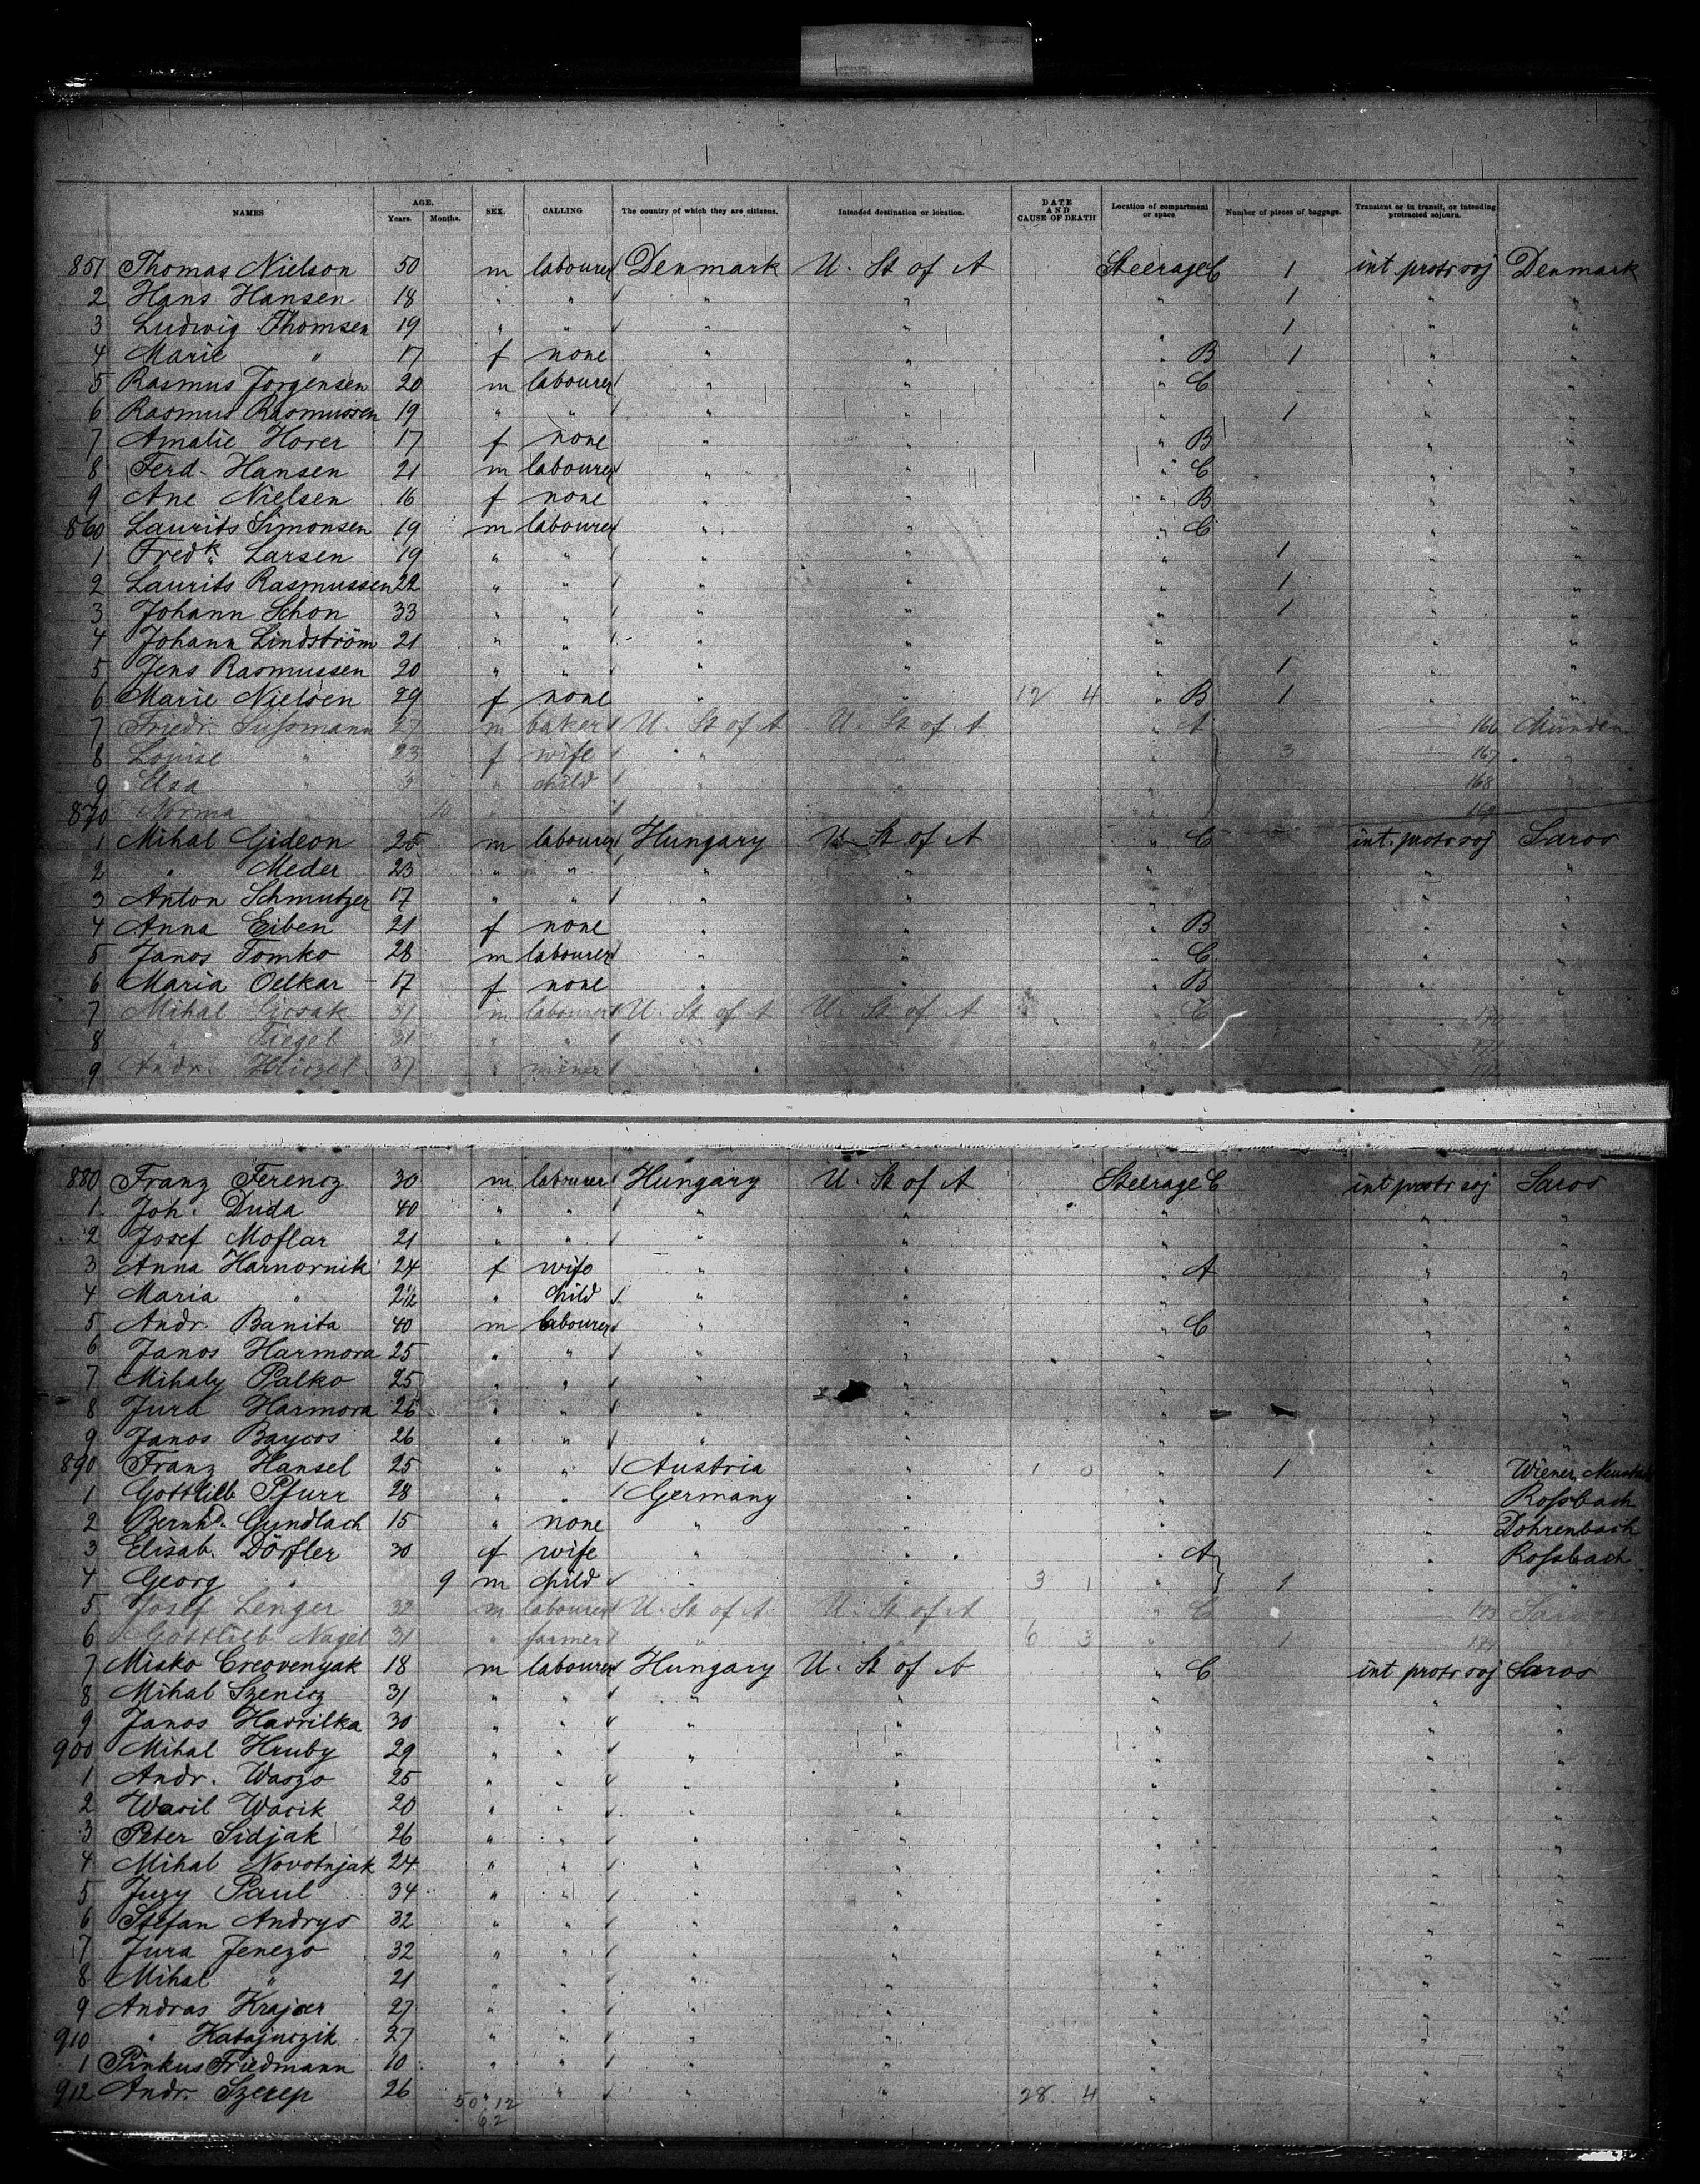 NAMES AGE. Years. Months. SEX. CALLING The country of which they are citizens. Intended destination or location. DATE AND CAUSE OF DEATH Location of compartment or space Number of pieces of baggage. Transient or in transit, or intending protracted sojourn.
851 Thomas Nielson 50 m labourer Denmark U. St of A Steerage C 1 int protr soj Denmark
2 Hans Hansen 18 " " " " " 1 " "
3 Ludwig Thomsen 19 " " " " " 1 " "
4 Marie " 17 f none " " " B 1 " "
5 Rasmus Jorgensen 20 m labourer " " " C " "
6 Rasmus Rasmussen 19 " " " " " 1 " "
7 Amalie Hover 17 f none " " " B " "
8 Ferd. Hansen 21 m labourer " " " C " "
9 Ane Nielsen 16 f none " " " B " "
860 Laurits Simonsen 19 m labourer " " " C " "
1 Fredk. Larsen 19 " " " " " 1 " "
2 Laurits Rasmussen 22 " " " " " 1 " "
3 Johann Schon 33 " " " " " 1 " "
4 Johann Lindström 21 " " " " " " "
5 Jens Rasmussen 20 " " " " " 1 " "
6 Marie Nielsen 29 f none " " 12 4 " B 1 " "
7 Friedr. Sussmann 27 m baker U. St of A U. St of A " A 166 Münden
8 Louise " 23 f wife " " " 3 167 "
9 Elsa " 3 " child " " " 168 "
870 Norma 10 " " 169
1 Mihal Gideon 25 m labourer Hungary U St of A " C int. protr soj Saros
2 " Meder 23 " " " " " " "
3 Anton Schmutzer 17 " " " " " " "
4 Anna Eiben 21 f none " " " B " "
5 Janos Tomko 28 m labourer " " " C " "
6 Maria Oelkar 17 f none " " " B " "
7 Mihal 31 m labourer U. St of A U. St of A C 170
8 " Fiegel 31 " " " " " 171
9 Andr. 37 " miner " "
880 Franz Ferencz 30 m labourer Hungary U. St of A Steerage C int protr soj Saros
1 Joh. Duda 40 " " " " " " "
2 Josef Moflar 21 " " " " " " "
3 Anna Harnornik 24 f wife " " " A " "
4 Maria " 2 1/12 " child " " " " "
5 Andr. Banita 40 m labourer " " " C " "
6 Janos Harmora 25 " " " " " " "
7 Mihaly Palko 25 " " " " " " "
8 Jura Harmora 26 " " " " " " "
9 Janos Baycos 26 " " " " " " "
890 Franz Hansel 25 " " Austria " 1 0 " 1 " Wiener Neustadt
1 Gottlieb Pfurr 28 " " Germany " " " Rossbach
2 Bernhd. Gundlach 15 " none " " " " Dohrenbach
3 Elisab. Dörfler 30 f wife " " " A " Rossbach
4 Georg " 9 m child " " 3 1 " 1 " "
5 Josef Lenger 32 m labourer U. St of A U. St of A " C 173 Saros
6 Gottlieb Nagel 31 " farmer " " 6 3 " 1 174
7 Misko Creovenyak 18 m labourer Hungary U. St of A " C int protr soj Saros
8 Mihal Szenicz 31 " " " " " " "
9 Janos Havrilka 30 " " " " " " "
900 Mihal Hruby 29 " " " " " " "
1 Andr. Waszo 25 " " " " " " "
2 Wasil Wacik 20 " " " " " " "
3 Peter Sidjak 26 " " " " " " "
4 Mihal Novotnjak 24 " " " " " " "
5 Jury Paul 34 " " " " " " "
6 Stefan Andrys 32 " " " " " " "
7 Jura Jenezo 32 " " " " " " "
8 Mihal " 21 " " " " " " "
9 Andras Krajcer 27 " " " " " " "
910 " Katajnczik 27 " " " " " " "
1 Pinkus Friedmann 10 " " " " " " "
912 Andr. Szerep 26 " " " " 28 4 " " "
50 12
62